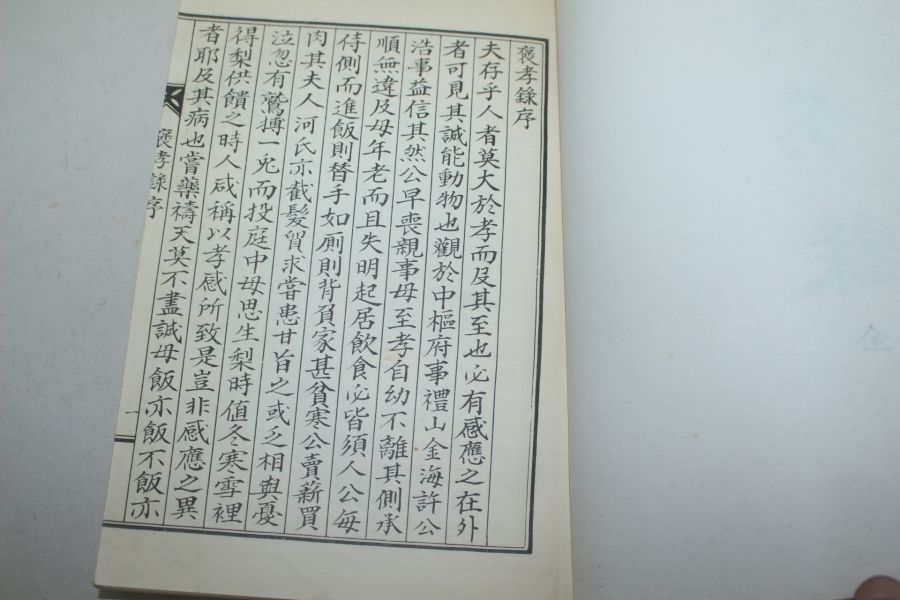 褒孝錄序
夫存乎人者莫大於孝而及其至也必有感應之在外
者可見其誠能動物也觀於中樞府事禮山金海許公
浩事益信其然公早喪親事母至孝自幼不離其側承
順無違及母年老而且失明起居飮食必皆須人公每
侍側而進飯則替手如厠則背負家甚貧寒公賣薪買
肉其夫人河氏亦截髮質求嘗患甘旨之或乏相與憂
泣忽有鷲搏一兔而投庭中母思生梨時値冬寒雪裡
得梨供饋之時人咸稱以孝感所致是豈非感應之異
者耶及其病也嘗藥禱天莫不盡誠母飯亦飯不飯亦
褒孝錄序
一